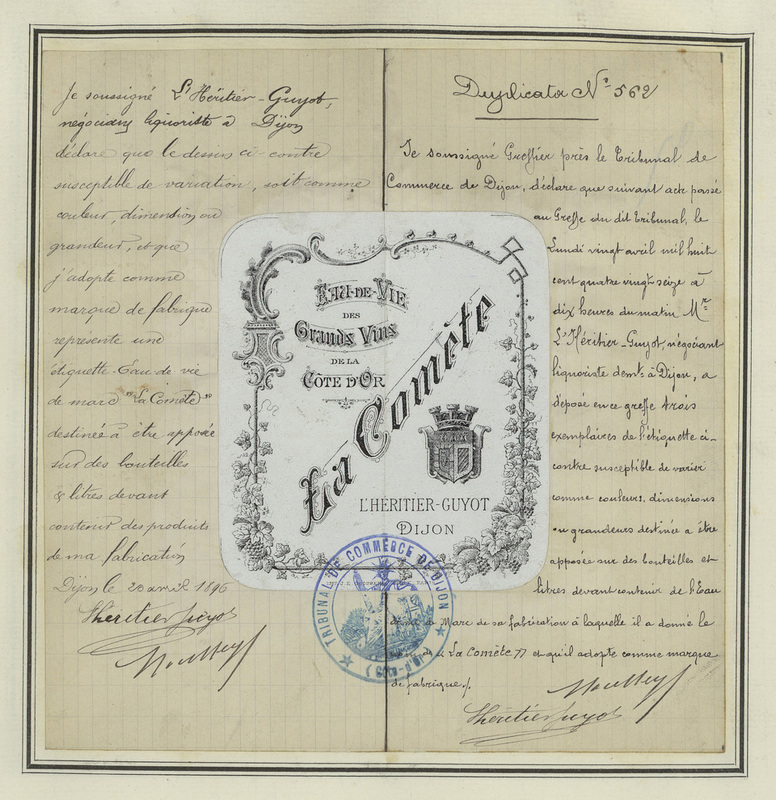 Je soussigné L'Héritier-Guyot,
négociant liquoriste à Dijon
déclare que le dessin ci-contre
susceptible de variation, soit comme
couleur, dimension ou
grandeur, et que
j'adopte comme
marque de fabrique
représente une
étiquette Eau de vie
de marc "La Comète"
destinés à être apposée
sur des bouteilles
& litres devant
contenir des produits
de ma fabrication
Dijon le 20 avril 1896
Lhéritier Guyot
EAU-DE-VIE
DES
Grands Vins
DE LA
CÔTE D'OR
La Comète
L'HÉRITIER-GUYOT
DIJON
TRIBUNAL DE COMMERCE DE DIJON
(CÔTE-D'OR)
Duplicata N° 562
Je soussigné Greffier près le Tribunal de
Commerce de Dijon, déclare que suivant acte passé
au Greffe du dit Tribunal, le
Lundi vingt avril mil huit
cent quatre vingt seize à
dix heures du matin Mr
L'Héritier-Guyot négociant
liquoriste demt à Dijon, a
déposé en ce greffe trois
exemplaires de l'étiquette ci-
contre susceptible de varier
comme couleurs, dimensions
ou grandeurs destinée à être
apposée sur des bouteilles et
litres devant contenir de l'Eau
de vie de Marc de sa fabrication à laquelle il a donné le
nom de "La Comète" et qu'il adopte comme marque
de fabrique.
Lhéritier Guyot